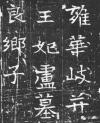 雍華岐并
王妃盧墓
良鄉子